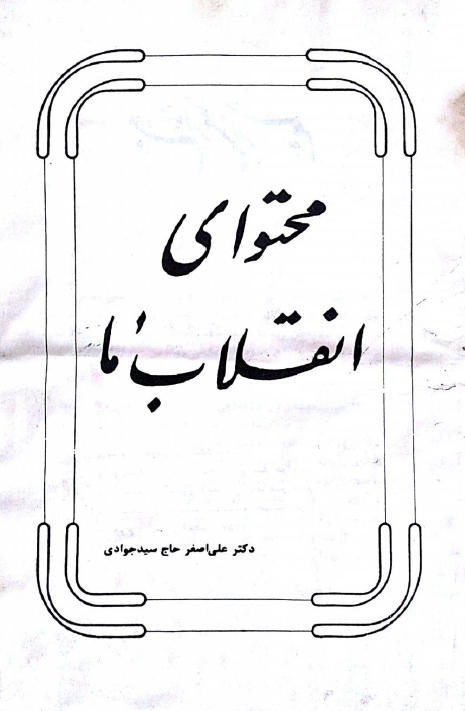 محتوای
انقلاب ما
دکتر علی‌اصغر حاج سیدجوادی